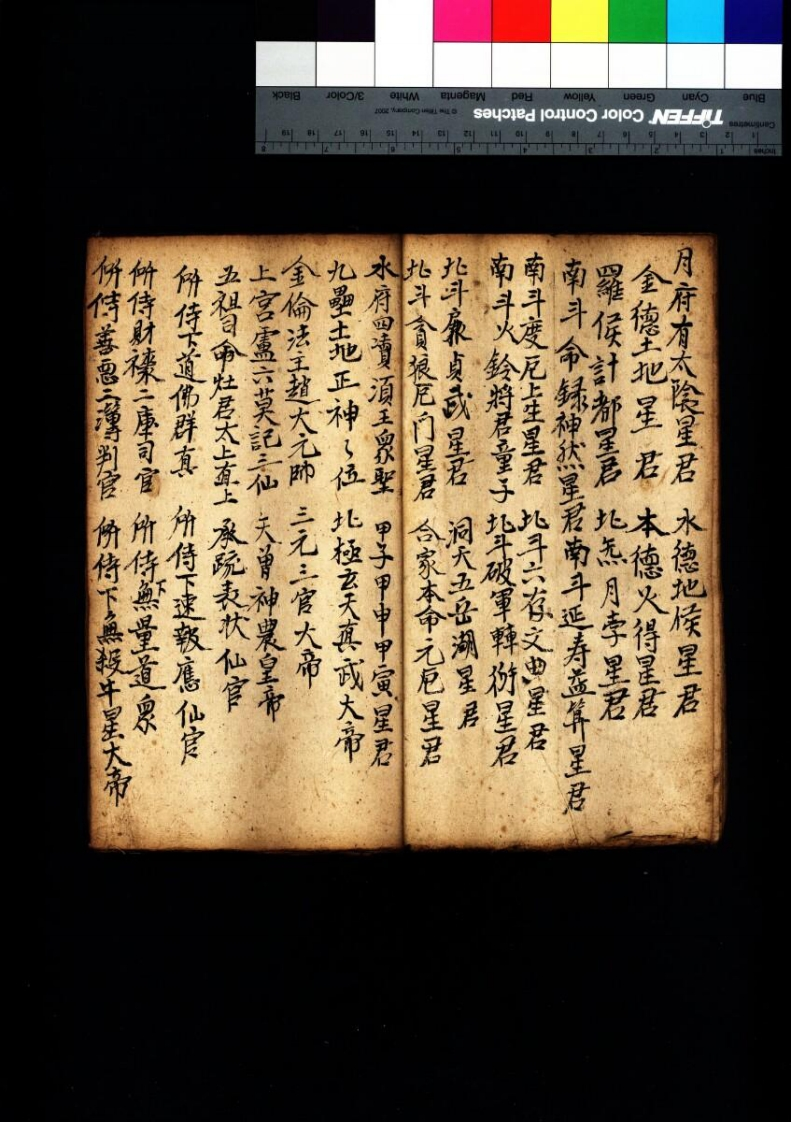 月府有太陰星君　水德地侯星君
金德土地星君　本德火得星君
羅侯計都星君　北炁月孛星君
南斗命録神然星君南斗延寿益筭星君
南斗度厄上生星君　北斗六存文曲星君
南斗火鈴將君童子　北斗破軍轉衍星君
北斗廉貞武星君　洞天五岳湖星君
北斗貪狼厄门星君　合家本命元厄星君
水府四瀆湏王衆聖　甲子甲申甲寅星君
九壘土地正神之位　北極玄天真武大帝
金倫法主趙大元帅　三元三官大帝
上宫盧六莫記三仙　天曾神農皇帝
五祖司命灶君太上直上　承䟽表状仙官
所侍下道佛群真　所侍下速報應仙官
所侍財禄二庫司官　所侍下無量道衆
所侍善惡二簿判官　所侍下無殺牛星大帝
Blue Cyan Green Yellow Red Magenta White 3/Color Black
TIFFEN Color Control Patches
© The Tiffen Company, 2007
Centimetres 1 2 3 4 5 6 7 8 9 10 11 12 13 14 15 16 17 18 19
Inches 1 2 3 4 5 6 7 8